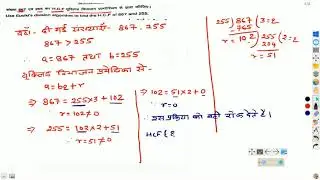 संख्या 867 एवं 255 का H.C.F यूक्लिड विभाजन एल्गोरिथ्म से ज्ञात कीजिए।
Use Euclid's division algorithm to find the H.C.F of 867 and 255.
हल:- दी गई संख्याएँ- 867, 255
867 > 255
∴ a = 867 तथा b = 255
यूक्लिड विभाजन प्रमेयिका से
a = bq + r
⇒ 867 = 255×3 + 102
r = 102 ≠ 0
⇒ 255 = 102×2 + 51
r = 51 ≠ 0
⇒ 102 = 51×2 + 0
∴ r = 0
∴ इस प्रक्रिया को यहीं रोक देते हैं।
HCF {8
255) 867 (3 = q
-765
r = 102) 255 (2 = q
204
r = 51